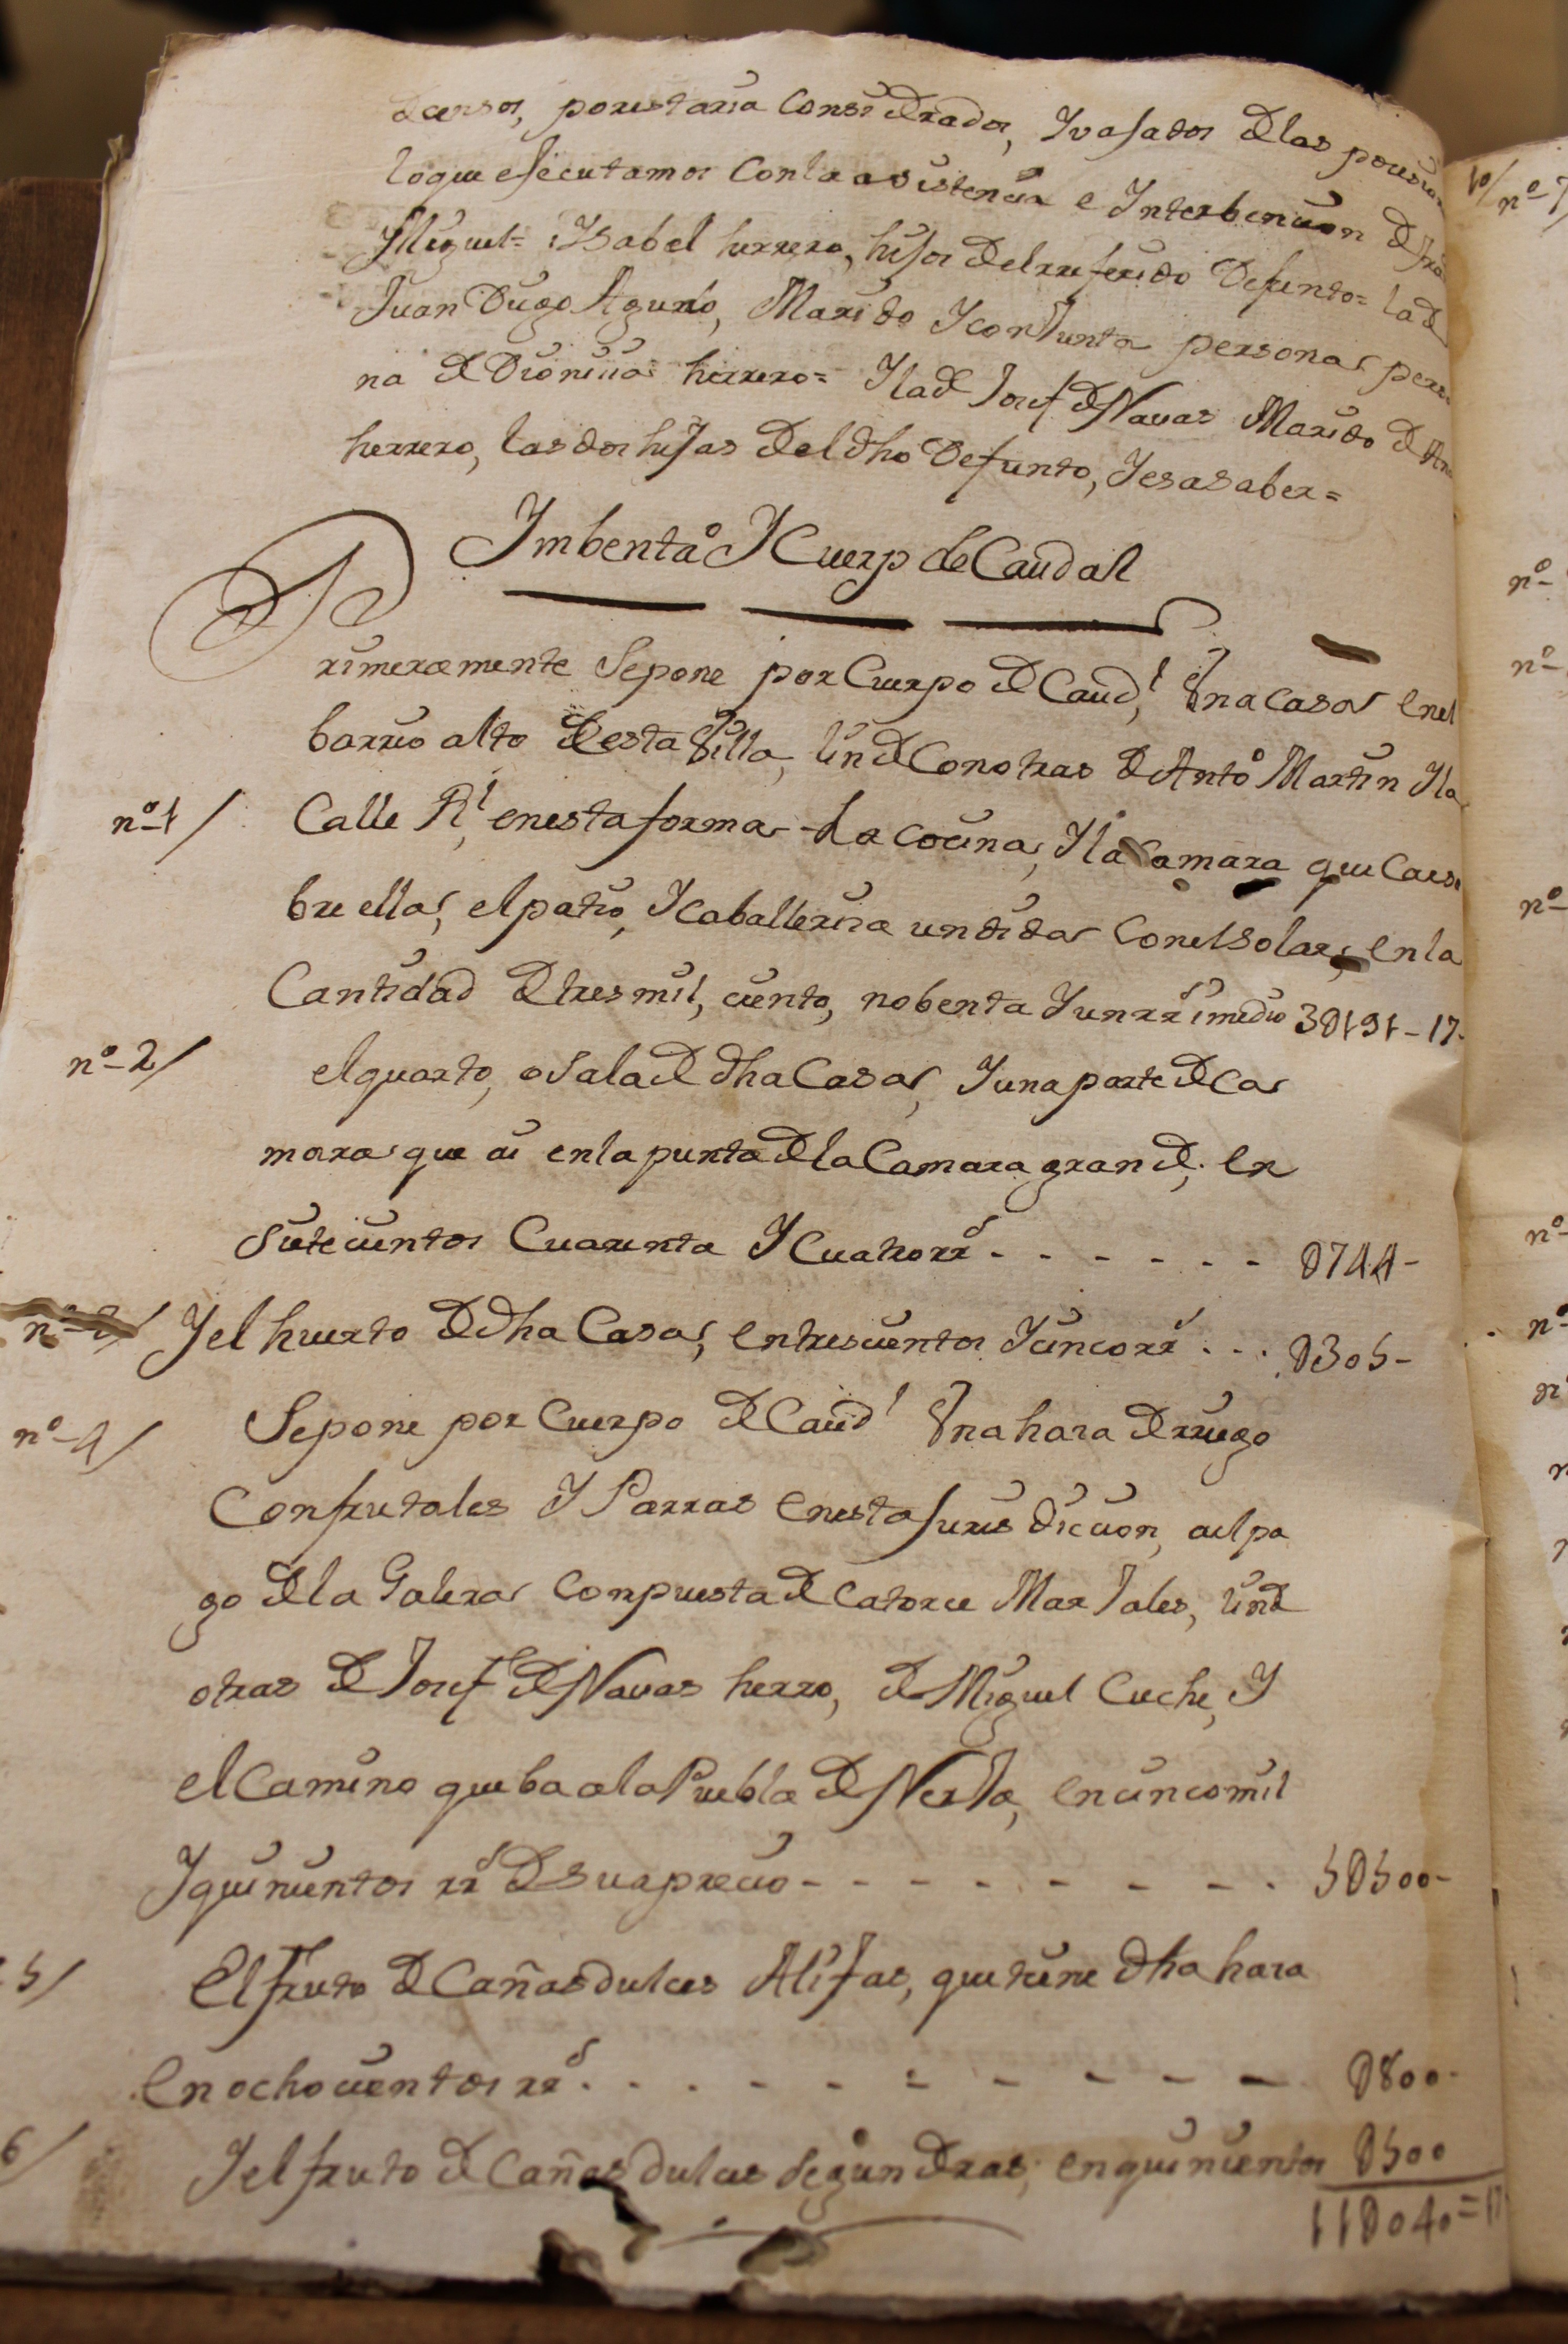 de censos, por estar ia Considerados, I vajados de las posesio
lo que ejecutamos Con la asistencia e Interbencion de
Miguel = Isabel herrero, hijos del rreferido Defunto = la de
Juan Diego Agudo, Marido I conJunta persona, perso
na de Dionicia herrero = I la de Josef de Navas Marido de Ana
herrero, las dos hiJas del dho Defunto, I es a saber =
Imbentº I Cuerpº de Caudal
Primeramente Se pone por Cuerpo de Caudl Vna Casa en el
barrio alto de esta Villa, linde Con otras de Antº Martin I la
nº 1/ Calle Rl, en esta forma - La Cocina, I la Camara que Cae so
bre ella, el patio, I Caballeriza undida Con el Solar, en la
Cantidad de tres mil, ciento, nobenta I un rrs i medio 3U191-17.
nº 2/ el quarto, o Sala de dha Casa, I una parte de Ca
mara que ai en la punta de la Camara grande, en
Setecientos Cuarenta I Cuatro rrs - - - - - - U744-
nº 3/ I el huerto de dha Casa, en trescientos I cinco rrs . - . U305-
nº 4/ Se pone por Cuerpo de Caudl Vna haza de rriego
Con frutales I Parras en esta Jurisdiccion, al pa
go de la Galera Conpuesta de Catorce MarJales, linde
otras de Josef de Navas herrº, de Miguel Cuche, I
el Camino que ba a la Puebla de NerJa, en cinco mil
I quinientos rrs de su aprecio - - - - - - - - . 5U500-
5/ El fruto de Cañas dulces AliJas, que tiene dha haza
en ochocientos rrs . - . - - - - - - - U800-
6/ I el fruto de Cañas dulces Segunderas, en quinientos U500
11U040=17